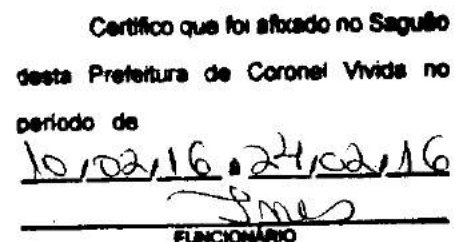 Certifico que foi afixado no Saguão
desta Prefeitura de Coronel Vivida no
período de
10/02/16 a 24/02/16
Ines
FUNCIONÁRIO